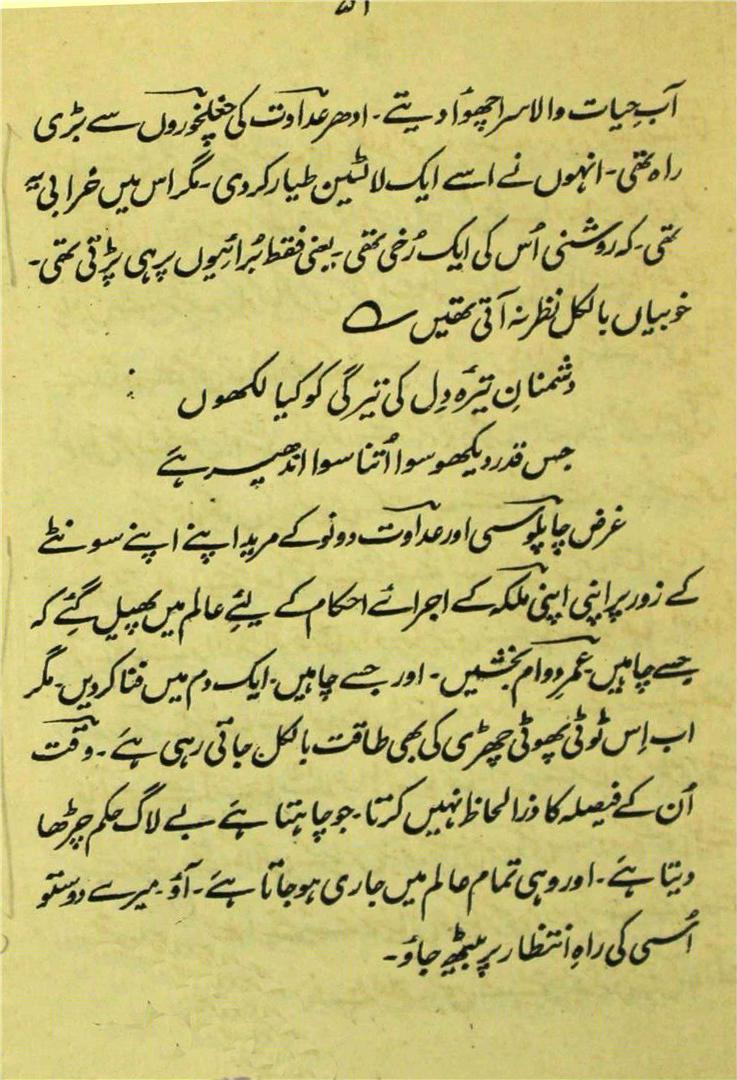 آبِ حیات والا سرا چھوا دیتے۔ ادھر عداوت کی چغلخوروں سے بڑی
راہ تھی۔ انہوں نے اسے ایک لالٹین طیار کر دی۔ مگر اس میں خرابی یہ
تھی۔ کہ روشنی اُس کی ایک رُخی تھی۔ یعنی فقط بُرائیوں پر ہی پڑتی تھی۔
خوبیاں بالکل نظر نہ آتی تھیں ؎
دشمنانِ تیرہ دِل کی تیرگی کو کیا لکھوں :
جس قدر دیکھو سوا اُتنا سوا اندھیر ہے
غرض چاپلوسی اور عداوت دونو کے مرید اپنے اپنے سونٹے
کے زور پر اپنی اپنی ملکہ کے اجرائے احکام کے لیئے عالم میں پھیل گئے کہ
جسے چاہیں عمرِ دوام بخشیں۔ اور جسے چاہیں۔ ایک دم میں فنا کر دیں۔ مگر
اب اِس ٹوٹی پھوٹی چھڑی کی بھی طاقت بالکل جاتی رہی ہے۔ وقت
اُن کے فیصلہ کا ذرا لحاظ نہیں کرتا۔ جو چاہتا ہے بے لاگ حکم چڑھا
دیتا ہے۔ اور وہی تمام عالم میں جاری ہو جاتا ہے۔ آؤ۔ میرے دوستو
اُسی کی راہِ انتظار پر بیٹھ جاؤ۔